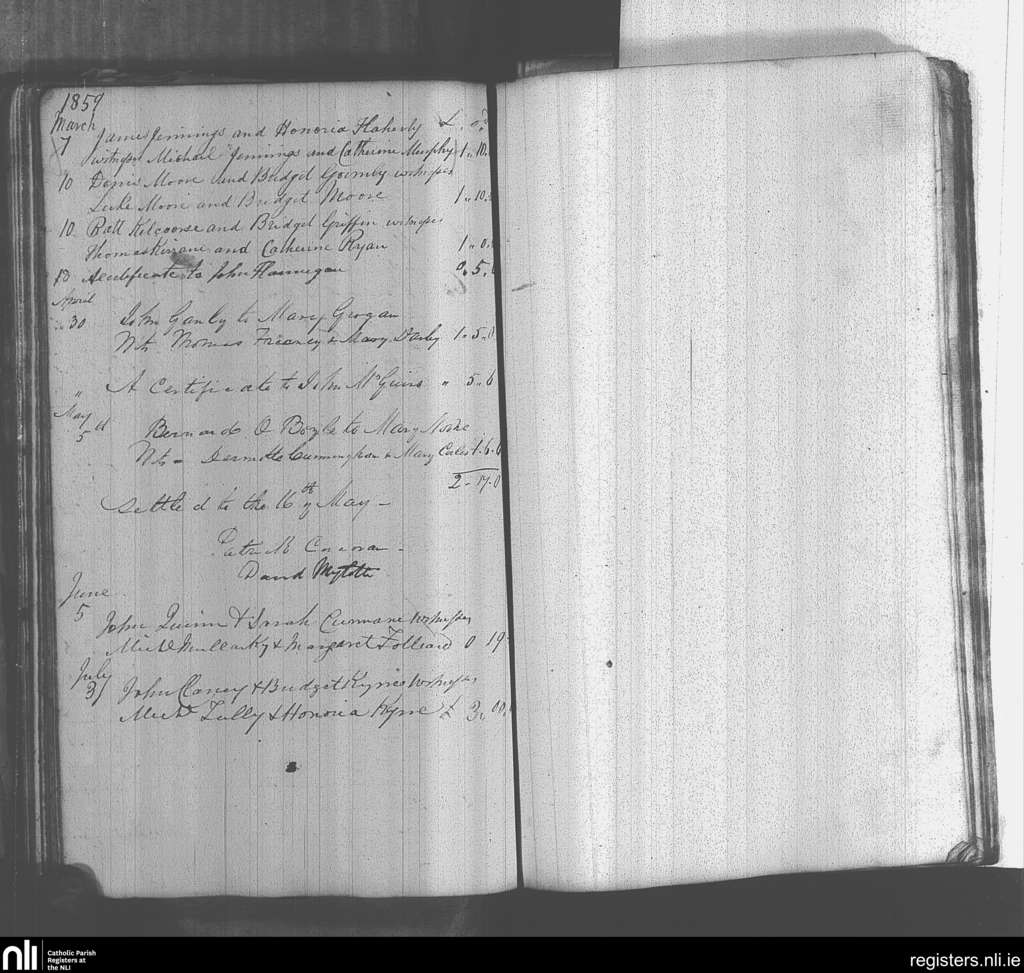 1859
March
7 James Jennings and Honoria Flaherty £
witness Michael Jennings and Catherine Murphy 1 " 10
10 Denis Moore and Bridget witness
Luke Moore and Bridget Moore 1 " 10
10 Patt and Bridget Griffin witness
Thomas Kirrane and Catherine Ryan 1 " 0
13 A certificate to John Flannegan 0 " 5
April
" 30 John Ganly to Mary Grogan
Wts Thomas Freaney & Mary Darby 1 " 5 " 0
" A Certificate to John McGuire " 5 " 6
May
5 Bernard O Boyle to Mary
Wts - Cunningham & Mary 1 - 6 - 6
2 - 17 - 0
Settled to the 16th of May -
Patr Corcoran -
David Mylotte
June
5 John Quinn & Sarah Cunnane witnesses
Michl Mullarky & Margaret Folliard 0 19
July
3 John Clancy & Bridget Kyne witnesses
Michl Tully & Honoria Kyne £ 3 " 00
nli Catholic Parish
Registers at
the NLI
registers.nli.ie